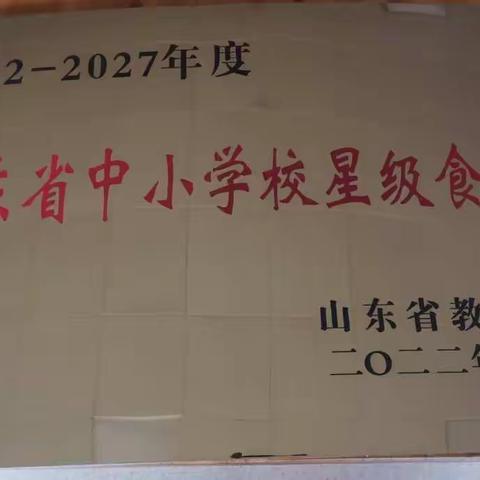 2-2027年度
省中小学校星级食
山东省教
二〇二二年